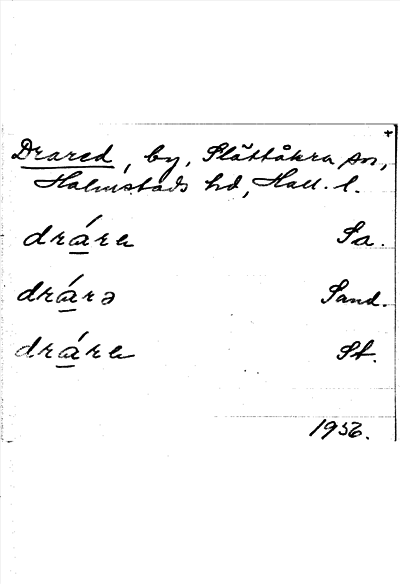 +
Drared, by, Slättåkra sn,
Halmstads hd, Hall. l.
drá̲ra Sa.
drá̲rə Sand.
drá̲ra St.
1956.